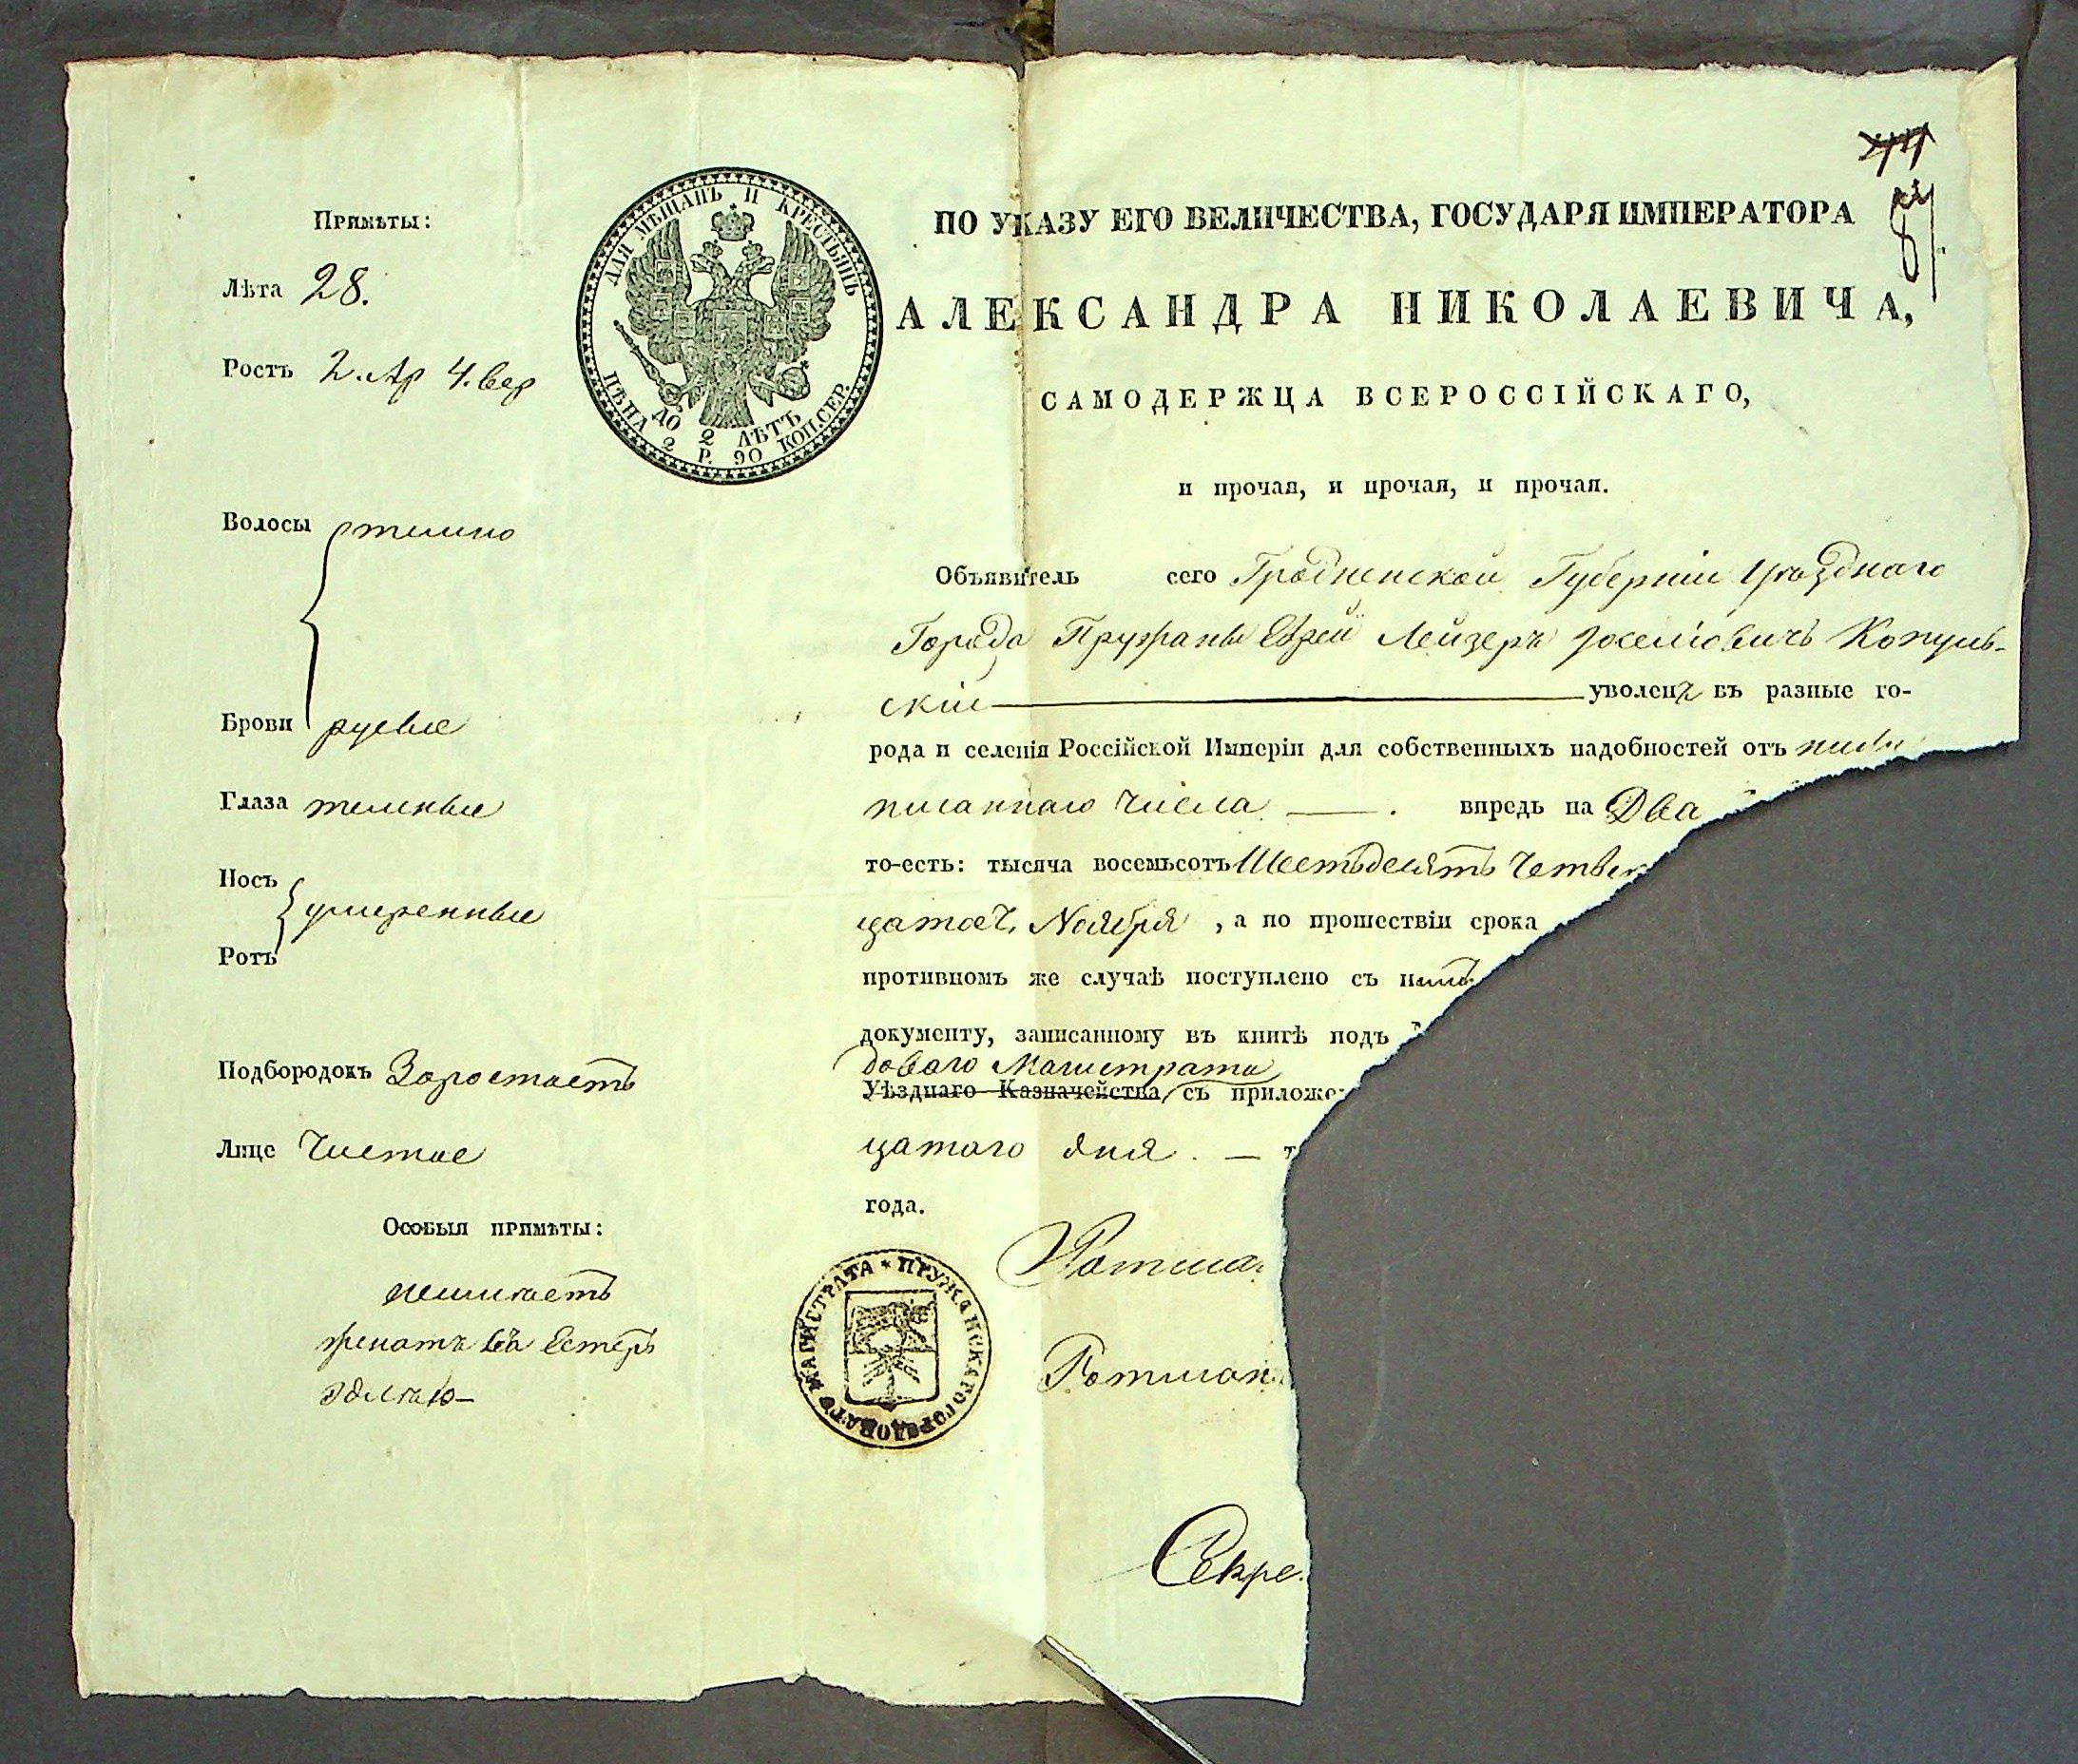 Примѣты:
Лѣта 28.
Ростъ 2. Ар 4. вер
Волосы темно
Брови русые
Глаза темные
Носъ
умеренные
Ротъ
Подбородокъ Заростаетъ
Лице Чистое
Особыя примѣты:
неимѣетъ
женатъ на Естерѣ
ДЛЯ МѢЩАНЪ И КРЕСТЬЯНЪ
ДО 2 ЛѢТЪ
ЦѢНА 2 Р. 90 КОП. СЕР.
87
ПО УКАЗУ ЕГО ВЕЛИЧЕСТВА, ГОСУДАРЯ ИМПЕРАТОРА
АЛЕКСАНДРА НИКОЛАЕВИЧА,
САМОДЕРЖЦА ВСЕРОССІЙСКАГО,
и прочая, и прочая, и прочая.
Объявитель сего Гродненской Губерніи Уѣзднаго
Города Пружаны Еврей Лейзеръ Іоселіовичъ Копуль-
скій уволенъ въ разные го-
рода и селенія Россійской Имперіи для собственныхъ надобностей отъ ниже
писаннаго числа впредь на Два
то-есть: тысяча восемьсотъ Шестьдесятъ Четвер
цатое ч. Ноября, а по прошествіи срока
противномъ же случаѣ поступлено съ нимъ
документу, записанному въ книгѣ подъ
доваго Магистрата
Уѣзднаго Казначейства съ приложе
цатаго дня. — т
года.
Ратма
Ратман
Секре
ПРУЖАНСКАГО ГОРОДОВАГО МАГИСТРАТА